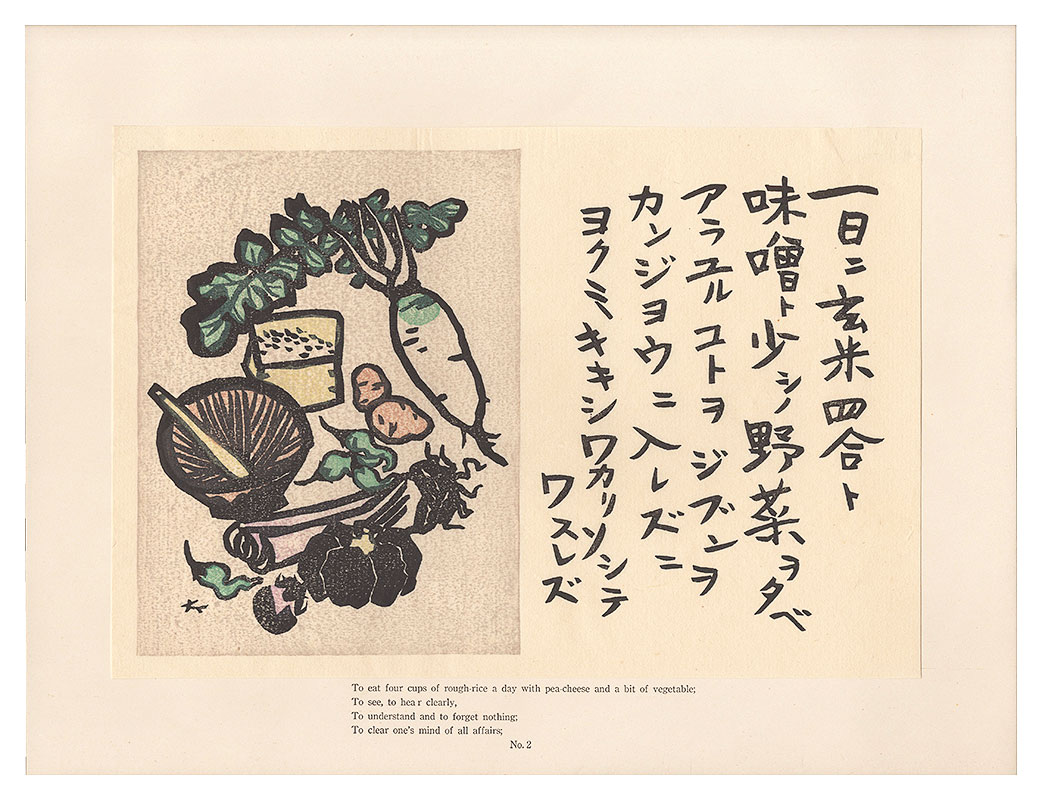 一日ニ玄米四合ト
味噌ト少シノ野菜ヲタベ
アラユルコトヲジブンヲ
カンジヨウニ入レズニ
ヨクミキキシワカリソシテ
ワスレズ
To eat four cups of rough-rice a day with pea-cheese and a bit of vegetable;
To see, to hear clearly,
To understand and to forget nothing;
To clear one's mind of all affairs;
No. 2